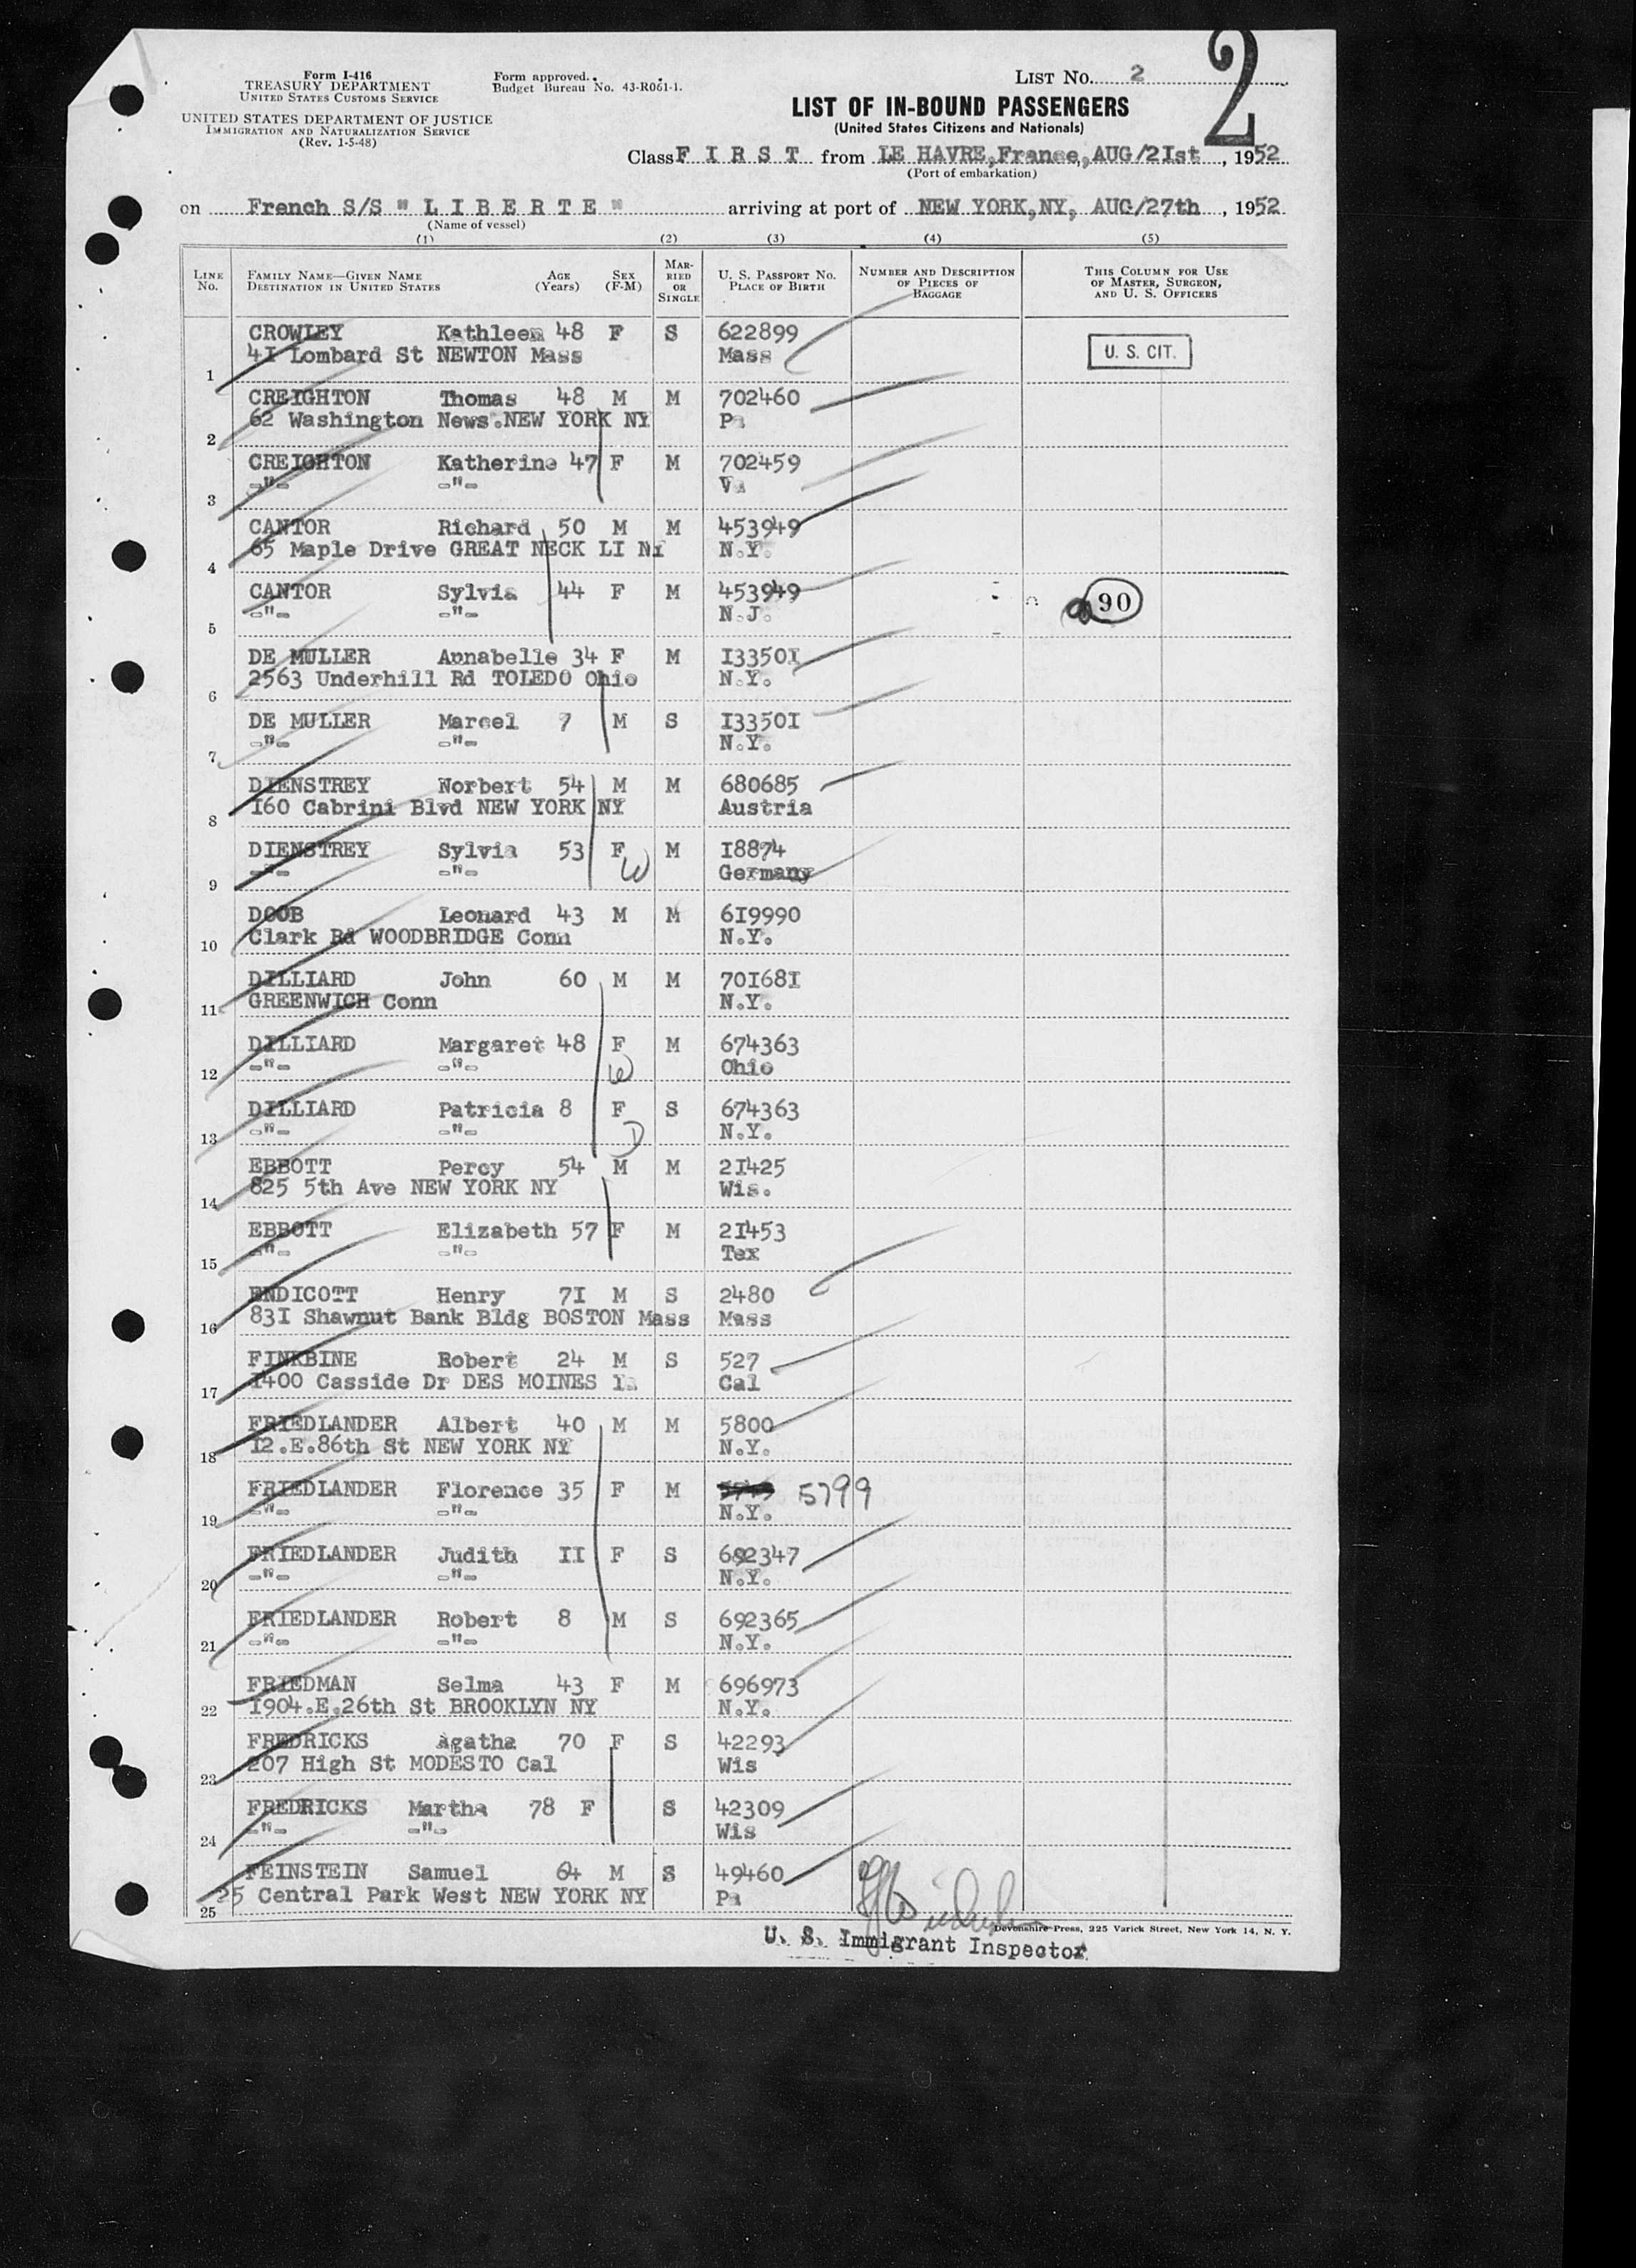 2
Form I-416
TREASURY DEPARTMENT
UNITED STATES CUSTOMS SERVICE
UNITED STATES DEPARTMENT OF JUSTICE
IMMIGRATION AND NATURALIZATION SERVICE
(Rev. 1-5-48)
Form approved.
Budget Bureau No. 43-R061-1.
LIST No. 2
LIST OF IN-BOUND PASSENGERS
(United States Citizens and Nationals)
Class F I R S T from LE HAVRE,France,AUG/2Ist, 1952
(Port of embarkation)
on French S/S " L I B E R T E " arriving at port of NEW YORK,NY, AUG/27th, 1952
(Name of vessel)
(1) (2) (3) (4) (5)
LINE No. FAMILY NAME—GIVEN NAME DESTINATION IN UNITED STATES AGE (Years) SEX (F-M) MARRIED OR SINGLE U. S. PASSPORT No. PLACE OF BIRTH NUMBER AND DESCRIPTION OF PIECES OF BAGGAGE THIS COLUMN FOR USE OF MASTER, SURGEON, AND U. S. OFFICERS
CROWLEY Kathleen 48 F S 622899
1 4I Lombard St NEWTON Mass Mass U. S. CIT.
CREIGHTON Thomas 48 M M 702460
2 62 Washington News.NEW YORK NY Pa
CREIGHTON Katherine 47 F M 702459
3 -"- -"- Va
CANTOR Richard 50 M M 453949
4 65 Maple Drive GREAT NECK LI NY N.Y.
CANTOR Sylvia 44 F M 453949 90
5 -"- -"- N.J.
DE MULLER Annabelle 34 F M I3350I
6 2563 Underhill Rd TOLEDO Ohio N.Y.
DE MULLER Marcel 7 M S I3350I
7 -"- -"- N.Y.
DIENSTREY Norbert 54 M M 680685
8 I60 Cabrini Blvd NEW YORK NY Austria
DIENSTREY Sylvia 53 F W M I8874
9 -"- -"- Germany
DOOB Leonard 43 M M 6I9990
10 Clark Rd WOODBRIDGE Conn N.Y.
DILLIARD John 60 M M 70I68I
11 GREENWICH Conn N.Y.
DILLIARD Margaret 48 F W M 674363
12 -"- -"- Ohio
DILLIARD Patricia 8 F D S 674363
13 -"- -"- N.Y.
EBBOTT Percy 54 M M 2I425
14 825 5th Ave NEW YORK NY Wis.
EBBOTT Elizabeth 57 F M 2I453
15 -"- -"- Tex
ENDICOTT Henry 7I M S 2480
16 83I Shawnut Bank Bldg BOSTON Mass Mass
FINKBINE Robert 24 M S 527
17 I400 Casside Dr DES MOINES Ia Cal
FRIEDLANDER Albert 40 M M 5800
18 I2.E.86th St NEW YORK NY N.Y.
FRIEDLANDER Florence 35 F M 5799
19 -"- -"- N.Y.
FRIEDLANDER Judith II F S 692347
20 -"- -"- N.Y.
FRIEDLANDER Robert 8 M S 692365
21 -"- -"- N.Y.
FRIEDMAN Selma 43 F M 696973
22 I904.E.26th St BROOKLYN NY N.Y.
FREDRICKS Agatha 70 F S 42293
23 207 High St MODESTO Cal Wis
FREDRICKS Martha 78 F S 42309
24 -"- -"- Wis
FEINSTEIN Samuel 64 M S 49460
25 Central Park West NEW YORK NY Pa
Devonshire Press, 225 Varick Street, New York 14, N. Y.
U. S. Immigrant Inspector